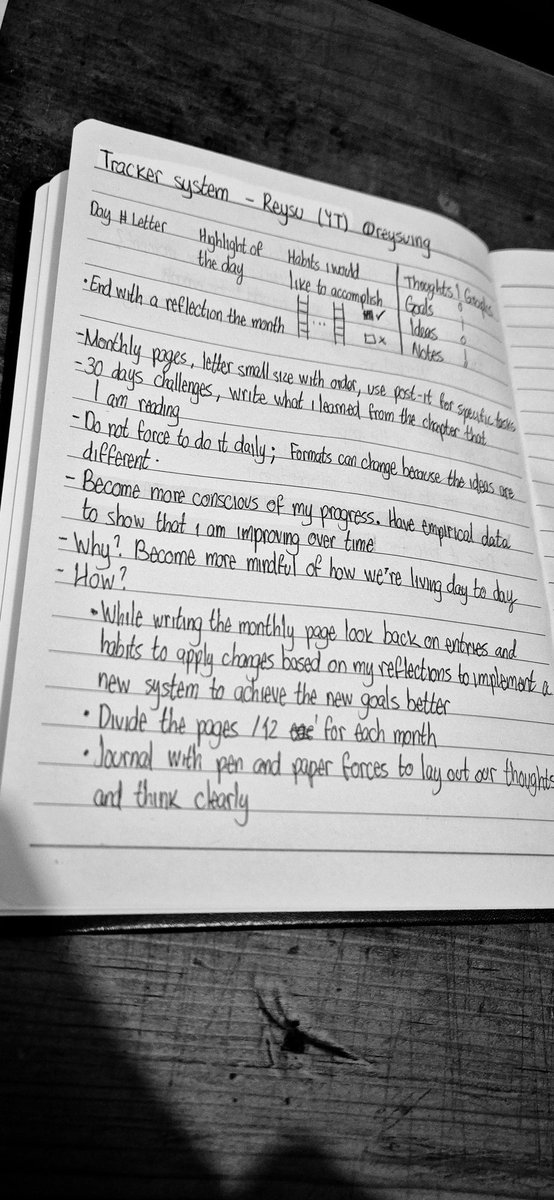 Tracker system - Reysu (YT) @reysuing
Day # Letter
Highlight of
the day
Habits i would
like to accomplish
Thoughts
Goals
Ideas
Notes
• End with a reflection the month
-Monthly pages, letter small size with order, use post-it for specific tasks
-30 days challenges, write what i learned from the chapter that
I am reading
- Do not force to do it daily; Formats can change because the ideas are
different.
- Become more conscious of my progress. Have empirical data
to show that i am improving over time
- Why? Become more mindful of how we're living day to day
- How?
• While writing the monthly page look back on entries and
habits to apply changes based on my reflections to implement a
new system to achieve the new goals better
• Divide the pages /12 for each month
• Journal with pen and paper forces to lay out our thoughts
and think clearly